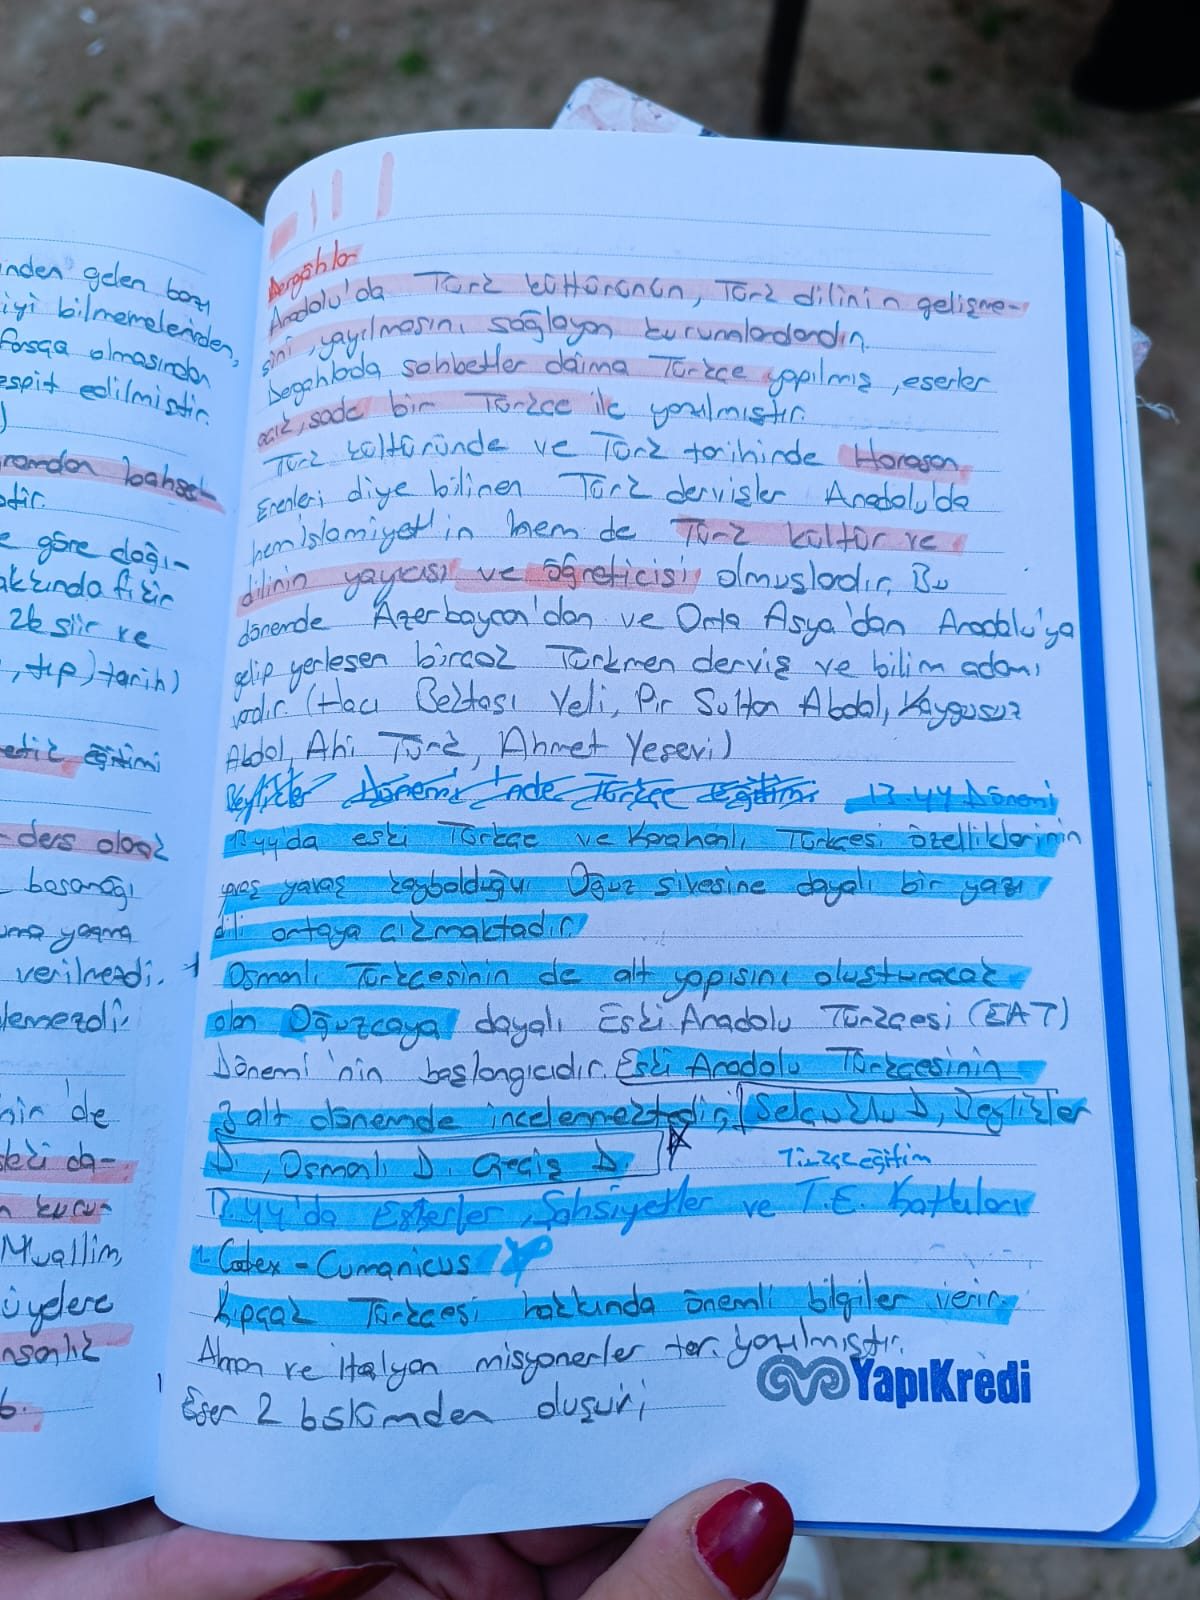 inden gelen bazı
iyi bilmemelerinden,
farsça olmasından
espit edilmiştir.
)
ramdan bahset-
dir.
e göre dağı-
akkında fikir
2k şiir ve
, tıp) tarih)
eğitimi
- ders olarak
başarağı
uma yazma
verilmezdi.
lemezdi.
nin de
ki da-
n kuru-
Muallim,
üyelere
nsanlık
b.
Dergâhlar
Anadolu'da Türk kültürünün, Türk dilinin gelişme-
sini, yayılmasını sağlayan kurumlardandır.
Dergahlada sohbetler daima Türkçe yapılmış, eserler
açık, sade bir Türkçe ile yazılmıştır.
Türk kültüründe ve Türk tarihinde Horasan
Erenleri diye bilinen Türk dervişler Anadolu'da
hem İslamiyet'in hem de Türk kültür ve
dilinin yayıcısı ve öğreticisi olmuşlardır. Bu
dönemde Azerbaycan'dan ve Orta Asya'dan Anadolu'ya
gelip yerleşen birçok Türkmen derviş ve bilim adamı
vardır. (Hacı Bektaşı Veli, Pir Sultan Abdal, Kaygusuz
Abdal, Ahi Türk, Ahmet Yesevi)
Beylikler Dönemi'nde Türkçe Eğitimi 13.yy Dönemi
13.yy'da eski Türkçe ve Karahanlı Türkçesi özelliklerinin
yavaş yavaş kaybolduğu Oğuz şivesine dayalı bir yazı
dili ortaya çıkmaktadır.
Osmanlı Türkçesinin de alt yapısını oluşturacak
olan Oğuzcaya dayalı Eski Anadolu Türkçesi (EAT)
Dönemi'nin başlangıcıdır. Eski Anadolu Türkçesinin
3 alt dönemde incelenmektedir; Selçuklu D, Beylikler
D., Osmanlı D. Geçiş D.
Türkçe eğitim
13.yy'da Eserler, Şahsiyetler ve T.E. Katkıları
1- Codex - Cumanicus
Kıpçak Türkçesi hakkında önemli bilgiler verir.
Alman ve İtalyan misyonerler tar. yazılmıştır.
Eser 2 bölümden oluşur;
YapıKredi